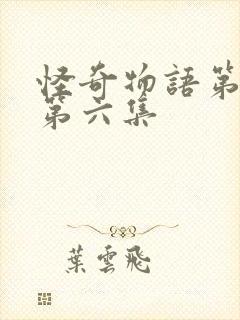 怪奇物語第
第六集
葉雲飛